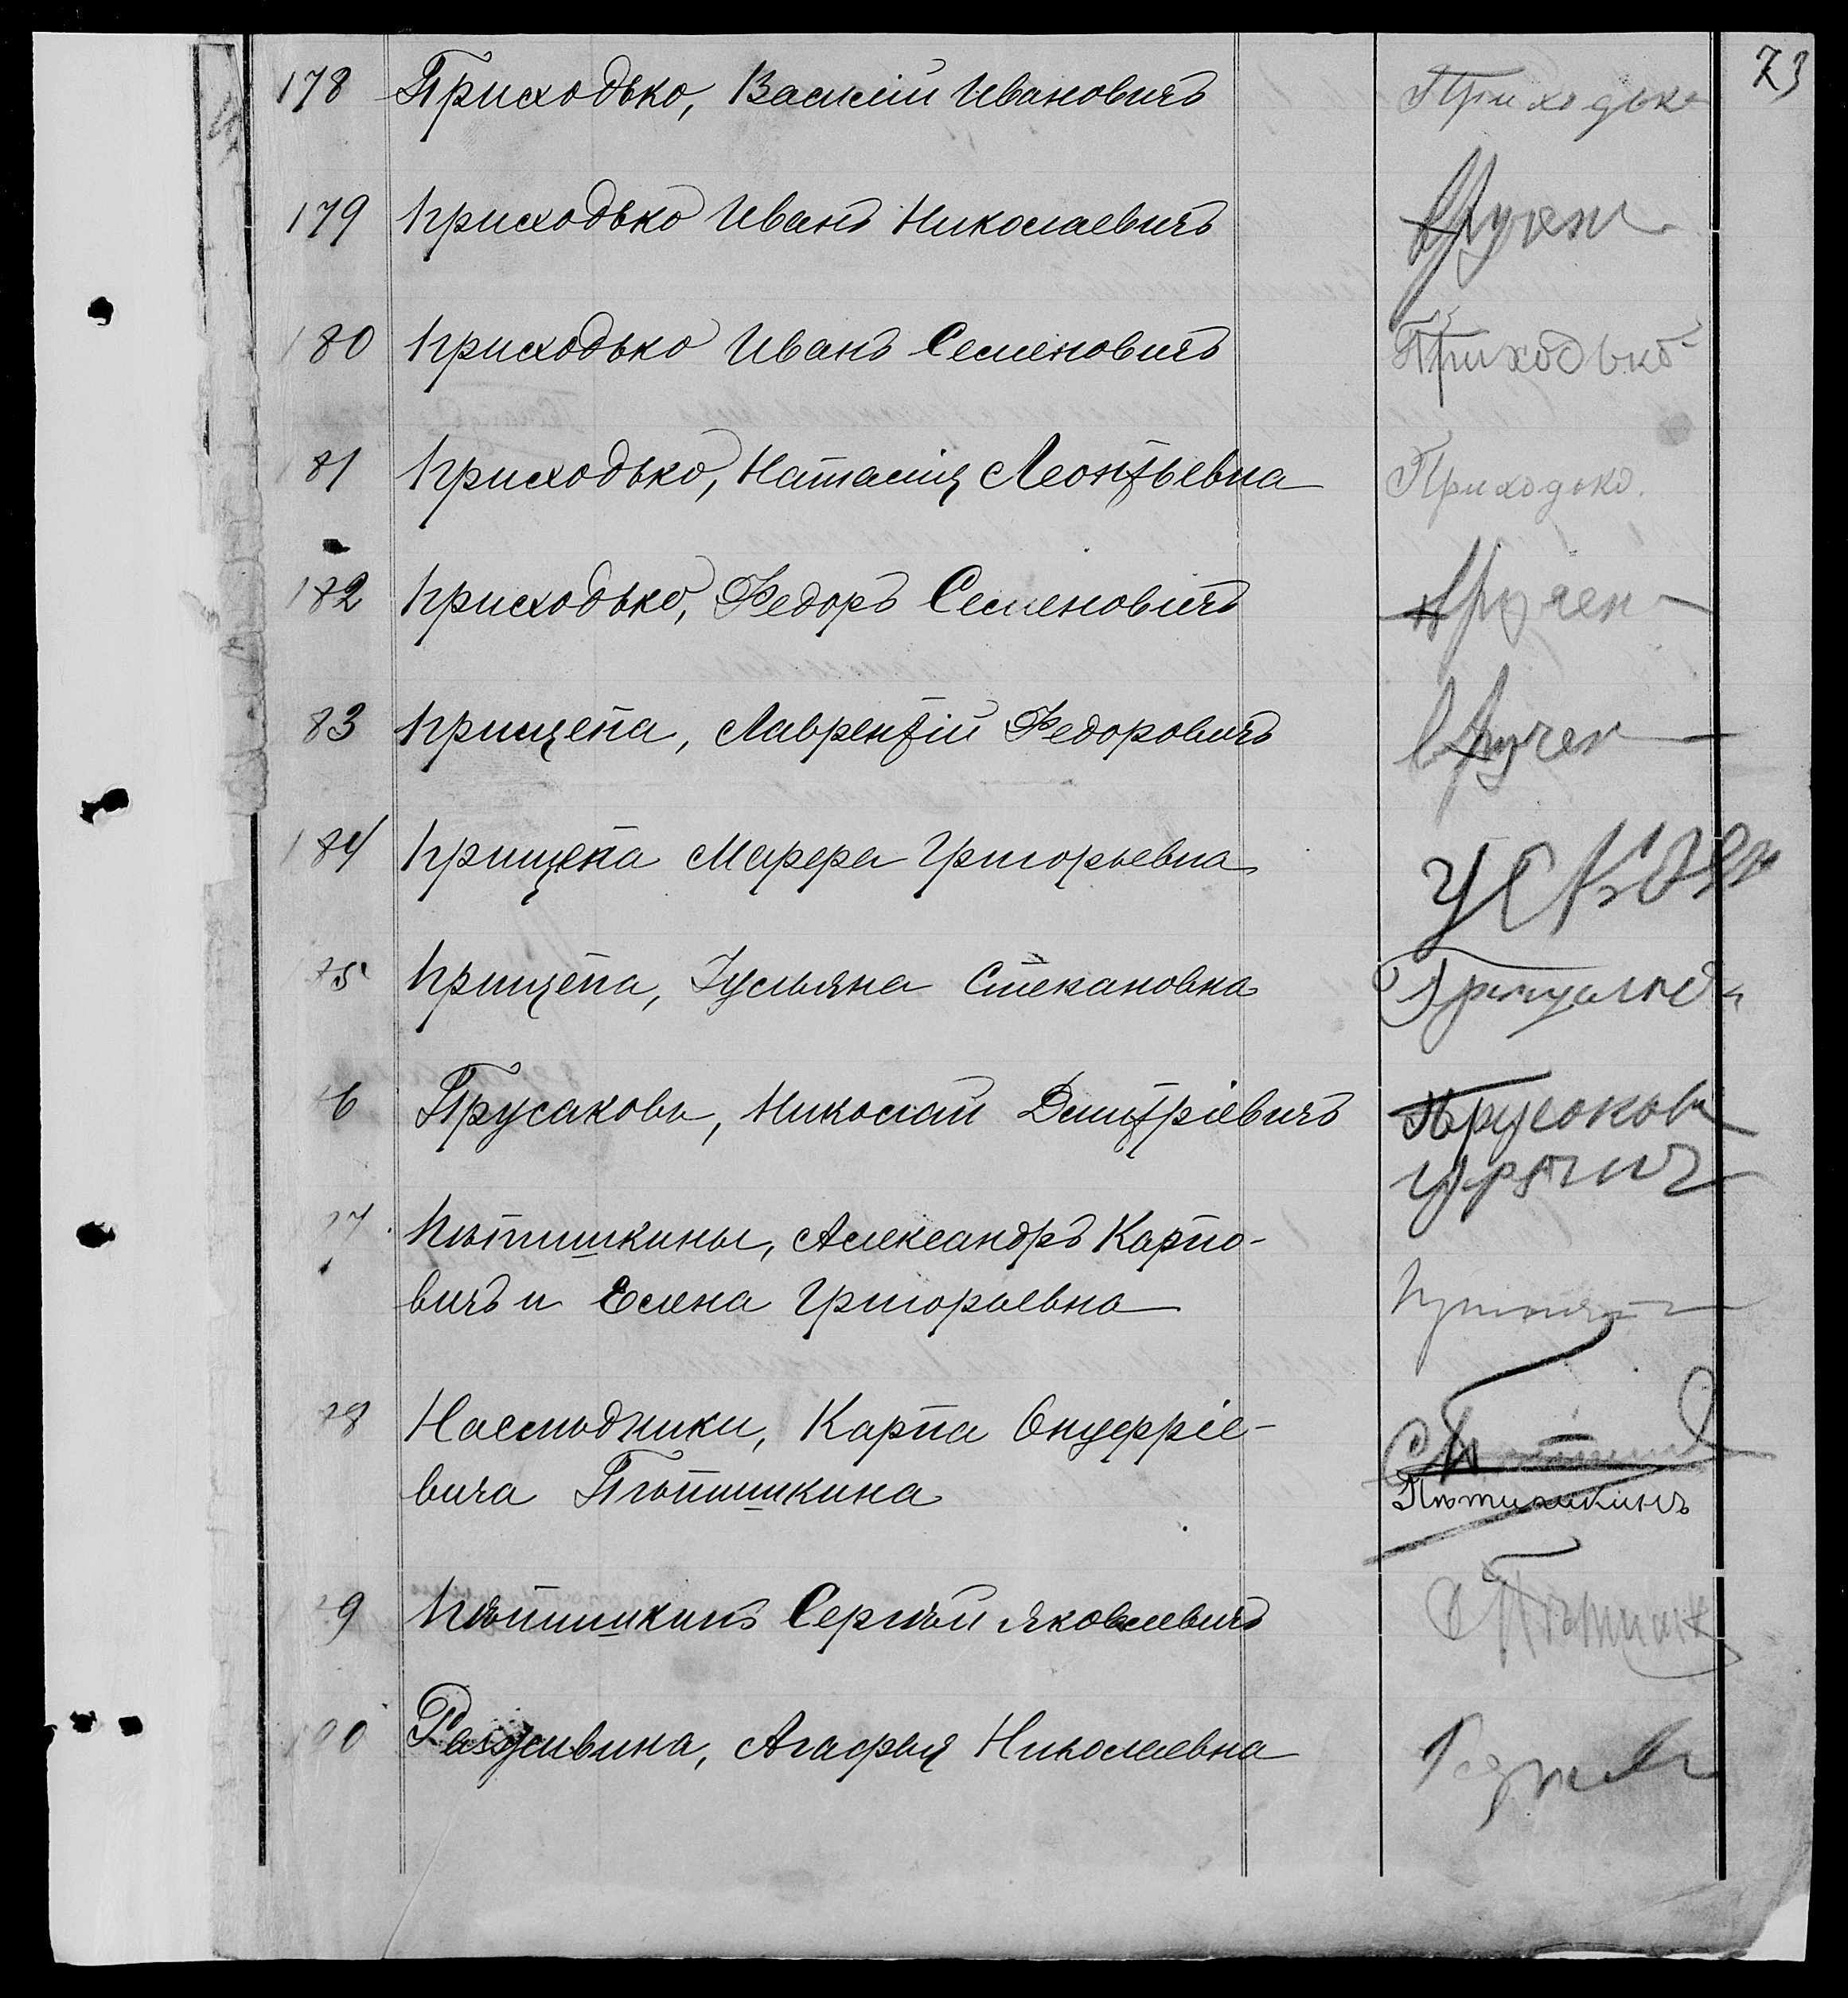 73
178 Приходько, Василій Ивановичъ Приходько
179 Приходько Иванъ Николаевичъ вручен
180 Приходько Иванъ Семеновичъ Приходько
81 Приходько, Наталія Леонтьевна Приходько.
182 Приходько, Федоръ Семеновичъ вручен
83 Прищепа, Лаврентій Федоровичъ вручен
184 Прищепа Марфа Григорьевна
85 Прищепа, Іульяна Степановна
6 Прусаковъ, Николай Дмитріевичъ Прусаков
7 Пѣтишкины, Александръ Карпо-
вичъ и Елена Григорьевна
8 Наслѣдники, Карпа Онуфріе-
вича Пѣтишкина Пѣтишкинъ
9 Пѣтишкинъ Сергѣй Яковлевичъ С Пѣтишк
190 Раздивина, Агафья Николаевна